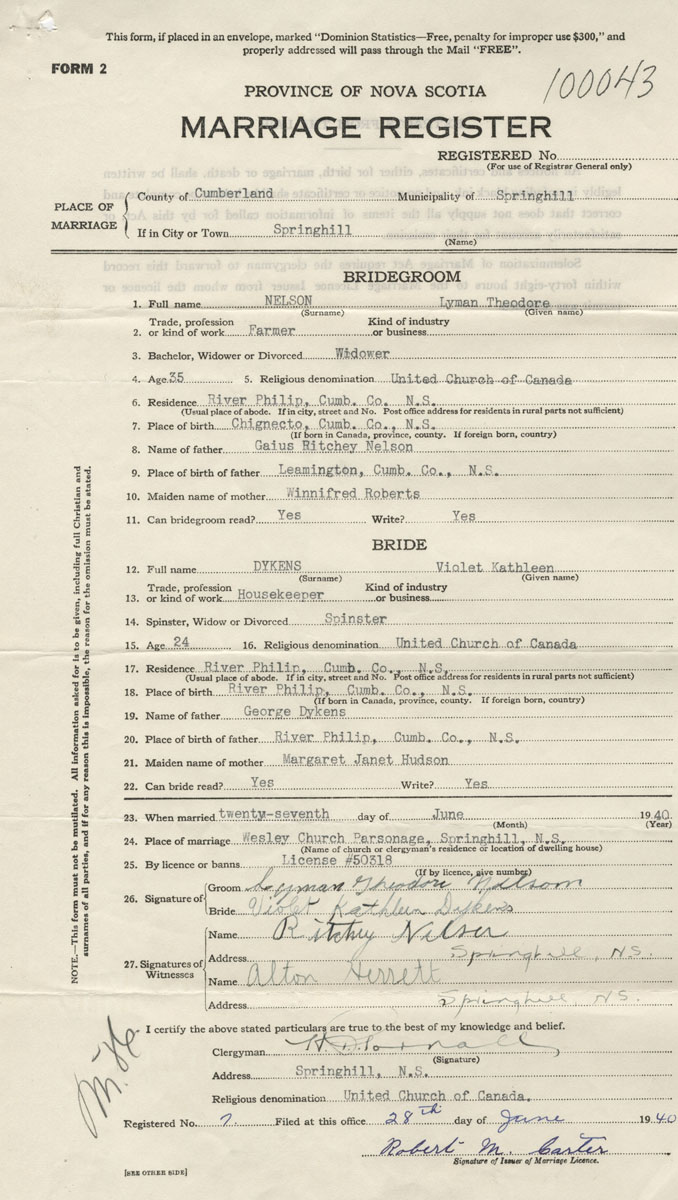 This form, if placed in an envelope, marked "Dominion Statistics—Free, penalty for improper use $300," and
properly addressed will pass through the Mail "FREE".
FORM 2
100043
PROVINCE OF NOVA SCOTIA
MARRIAGE REGISTER
REGISTERED No.
(For use of Registrar General only)
PLACE OF MARRIAGE
County of Cumberland Municipality of Springhill
If in City or Town Springhill
(Name)
BRIDEGROOM
1. Full name NELSON Lyman Theodore
(Surname) (Given name)
2. Trade, profession or kind of work Farmer Kind of industry or business
3. Bachelor, Widower or Divorced Widower
4. Age 35 5. Religious denomination United Church of Canada
6. Residence River Philip, Cumb. Co. N.S.
(Usual place of abode. If in city, street and No. Post office address for residents in rural parts not sufficient)
7. Place of birth Chignecto, Cumb. Co., N.S.
(If born in Canada, province, county. If foreign born, country)
8. Name of father Gaius Ritchey Nelson
9. Place of birth of father Leamington, Cumb. Co., N.S.
10. Maiden name of mother Winnifred Roberts
11. Can bridegroom read? Yes Write? Yes
BRIDE
12. Full name DYKENS Violet Kathleen
(Surname) (Given name)
13. Trade, profession or kind of work Housekeeper Kind of industry or business
14. Spinster, Widow or Divorced Spinster
15. Age 24 16. Religious denomination United Church of Canada
17. Residence River Philip, Cumb. Co., N.S.
(Usual place of abode. If in city, street and No. Post office address for residents in rural parts not sufficient)
18. Place of birth River Philip, Cumb. Co., N.S.
(If born in Canada, province, county. If foreign born, country)
19. Name of father George Dykens
20. Place of birth of father River Philip, Cumb. Co., N.S.
21. Maiden name of mother Margaret Janet Hudson
22. Can bride read? Yes Write? Yes
23. When married twenty-seventh day of June 1940
(Month) (Year)
24. Place of marriage Wesley Church Parsonage, Springhill, N.S.
(Name of church or clergyman's residence or location of dwelling house)
25. By licence or banns License #50318
(If by licence, give number)
26. Signature of
Groom Lyman Theodore Nelson
Bride Violet Kathleen Dykens
27. Signatures of Witnesses
Name Ritchey Nelson
Address Springhill, N.S.
Name Alton Terrett
Address Springhill, N.S.
I certify the above stated particulars are true to the best of my knowledge and belief.
Clergyman
(Signature)
Address Springhill, N.S.
Religious denomination United Church of Canada.
Registered No. 7. Filed at this office 28th day of June 1940
Robert M. Carter
Signature of Issuer of Marriage Licence.
[SEE OTHER SIDE]
NOTE.—This form must not be mutilated. All information asked for is to be given, including full Christian and
surnames of all parties, and if for any reason this is impossible, the reason for the omission must be stated.